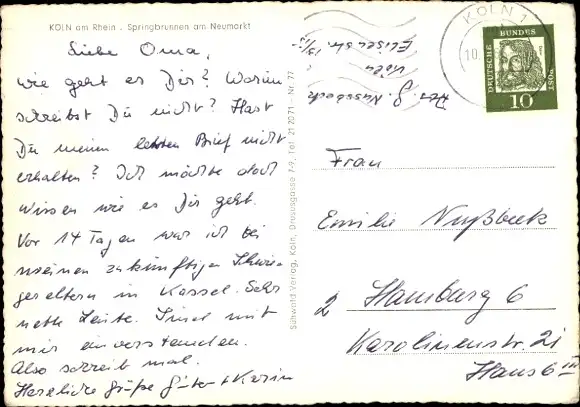 KÖLN am Rhein . Springbrunnen am Neumarkt
Liebe Oma,
wie geht es Dir? Warum
schreibst Du nicht? Hast
Du meinen letzten Brief nicht
erhalten? Ich möchte doch
wissen wie es Dir geht.
Vor 14 Tagen war ich bei
meinen zukünftigen Schwie-
gereltern in Kassel. Sehr
nette Leute. Sind mit
mir einverstanden.
Also schreib mal.
Herzliche Grüße Günter + Karin
Schwald Verlag, Köln, Drususgasse 7-9, Tel. 21 20 71 - Nr. 77
Abs. G. Nussbeck
Köln
Elisenstr. 13/15
KÖLN 1
10
DEUTSCHE BUNDESPOST
10
Frau
Emilie Nußbeck
2 Hamburg 6
Karolinenstr. 21
Haus 6 III